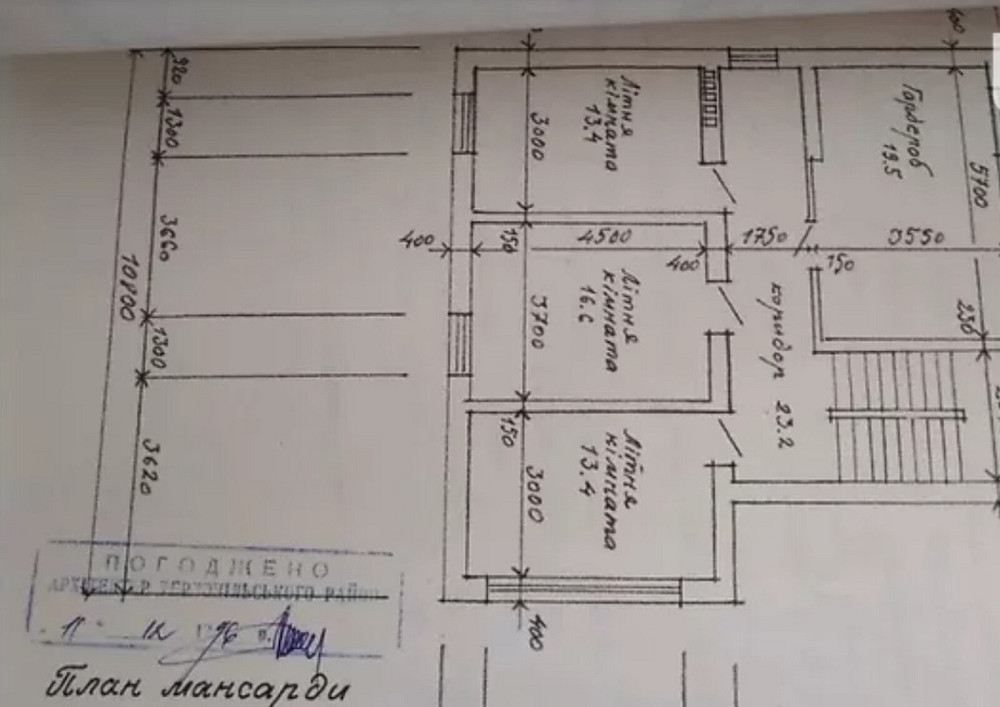 400
920
1300
3660
1300
3620
10800
3000
Літня
кімната
13.4
Гардероб
19.5
5700
400
150
4500
400
1750
150
3550
230
3700
Літня
кімната
16.6
коридор 23.2
150
3000
Літня
кімната
13.4
400
ПОГОДЖЕНО
АРХІТЕКТОР ТЕРНОПІЛЬСЬКОГО РАЙОНУ
11 IX 1996 р.
План мансарди